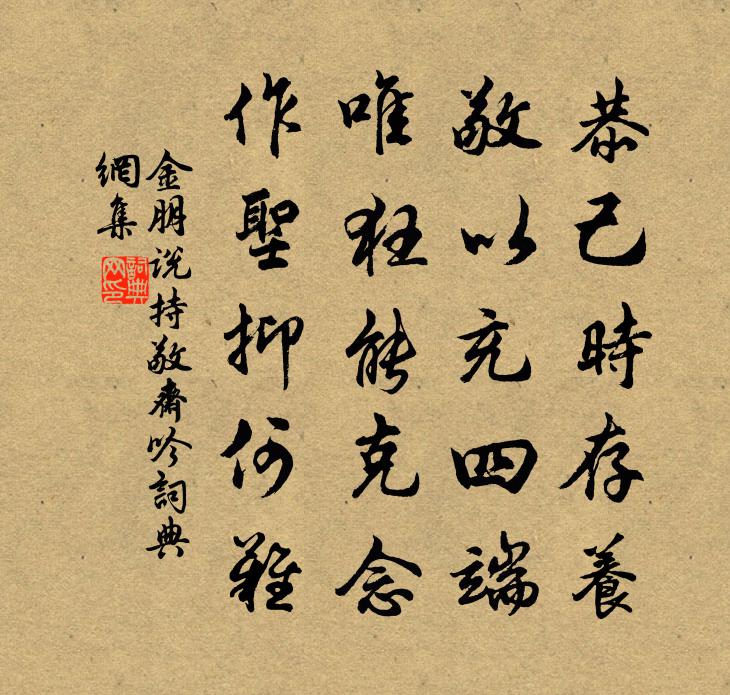 恭己時存養
敬以充四端
唯狂能克念
作聖抑何難
金朋说持敬齋吟詞典
網集
詞典
网印